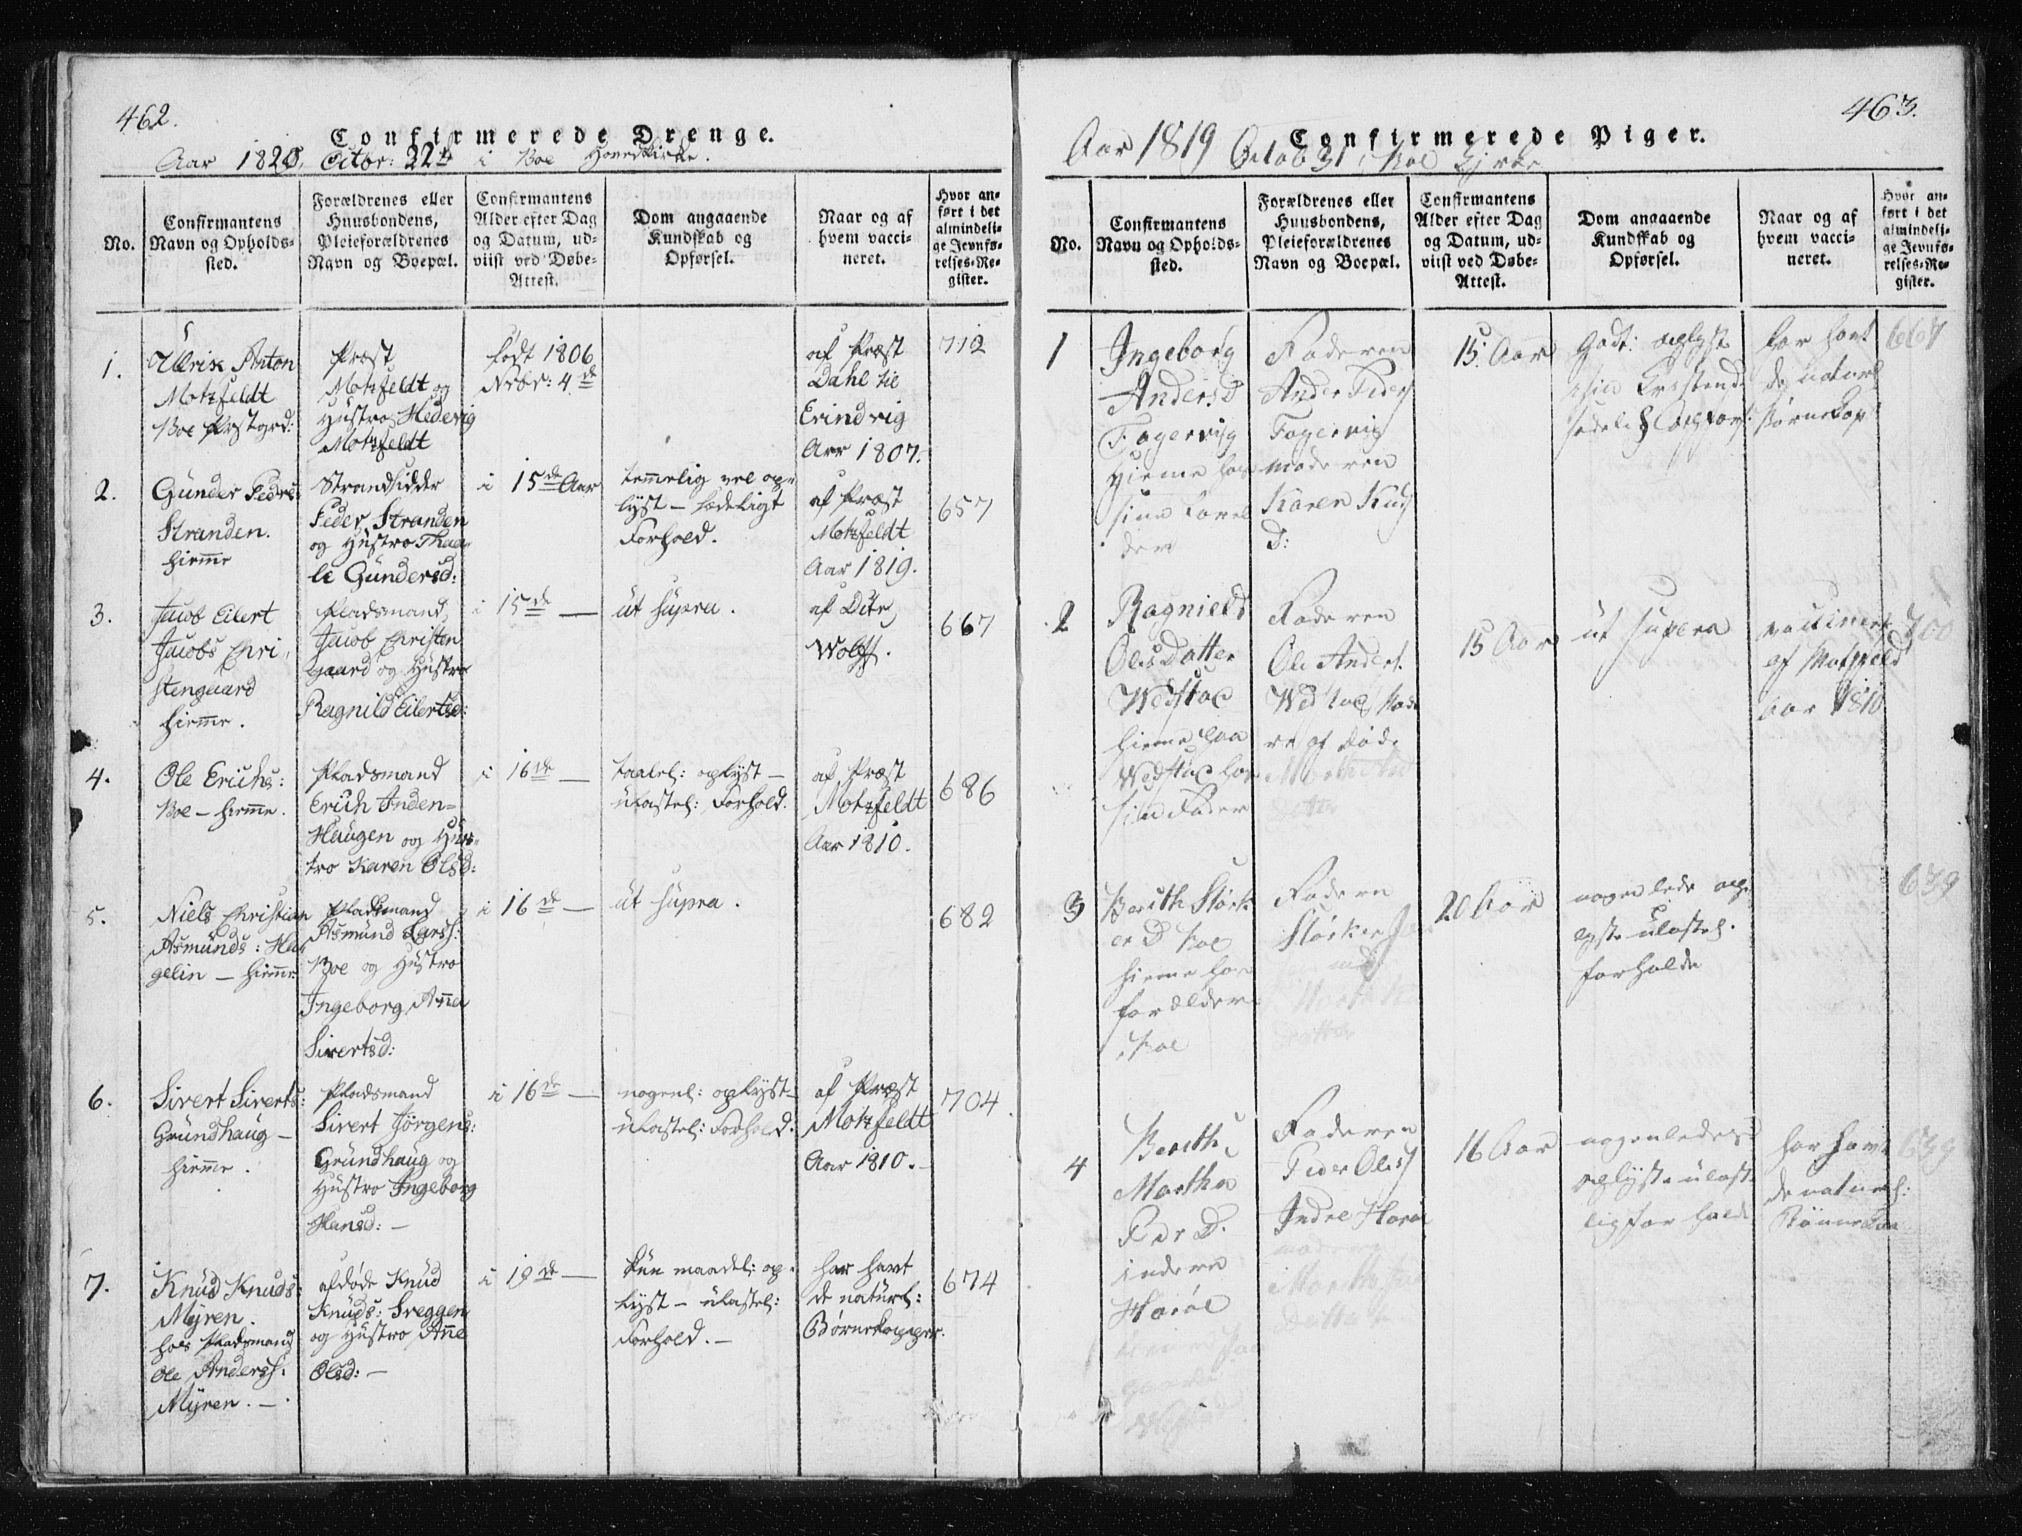 462.
Confirmerede Drenge.
Aar 1820. Octbr: 22de i Boe Hovedkirke.
No.
Confirmantens
Navn og Opholds-
sted.
Forældrenes eller
Huusbondens,
Pleieforældrenes
Navn og Boepæl.
Confirmantens
Alder efter Dag
og Datum, ud-
viist ved Døbe-
Attest.
Dom angaaende
Kundskab og
Opførsel.
Naar og af
hvem vacci-
neret.
Hvor an-
ført i det
almindeli-
ge Jevnfø-
relses-Re-
gister.
1.
Ulrik Anton
Motzfeldt
Boe Præstgrd:
Præst
Motzfeldt og
Hustro Hedevig
Motzfeldt
født 1806
Nvbr: 4de
af Præst
Dahl til
Erindvig
Aar 1807.
712
2.
Gunder Peders:
Stranden.
hiemme
Strandsidder
Peder Stranden
og Hustro Thaa-
le Gundersd:
i 15de Aar
temmelig vel op-
lyst - sædeligt
Forhold.
af Præst
Motzfeldt
Aar 1819.
657
3.
Jacob Eilert
Jacobs Chri-
stengaard
hiemme.
Pladsmand
Jacob Christen
gaard og Hustro
Ragnild Eilertsd:
i 15de —
ut supra.
af Ditr
Wolff.
667
4.
Ole Erichs:
Boe - hiemme.
Pladsmand
Erich Inden-
Haugen og Hus-
tro Karen Olsd:
i 16de —
taalel: oplyst -
ulastel: Forhold.
af Præst
Motzfeldt
Aar 1810.
686
5.
Niels Christian
Asmunds: Ha
gelin - hiemme
Pladsmand
Asmund Larss:
Boe og Hustro
Ingeborg Anna
Sivertsd:
i 16de —
ut supra.
682
6.
Sivert Siverts:
Grundhaug -
hiemme.
Pladsmand
Sivert Jörgens:
Grundhaug og
Hustro Ingeborg
Hansd: -
i 16de —
nogenl: oplyst-
ulastel: Forhold.
af Præst
Motzfeldt
Aar 1810. -
704.
7.
Knud Knuds:
Myren.
hos Pladsmand
Ole Anderss:
Myren. -
afdøde Knud
Knuds: Sveggen
og Hustro Anne
Olsd: -
i 19de —
kun maadel: op-
lyst - ulastel:
Forhold. -
har havt
de naturl:
Börnekopper.
674
463.
Confirmerede Piger.
Aar 1819 Octob 31 i Boe Kirke
No.
Confirmantens
Navn og Opholds-
sted.
Forældrenes eller
Huusbondens,
Pleieforældrenes
Navn og Boepæl.
Confirmantens
Alder efter Dag
og Datum, ud-
viist ved Døbe-
Attest.
Dom angaaende
Kundskab og
Opførsel.
Naar og af
hvem vacci-
neret.
Hvor an-
ført i det
almindeli-
ge Jevnfø-
relses-Re-
gister.
1
Ingeborg
Anders D
Fagervig
Hieme hos
sine Forel
der
Faderen
Ander Peders
Fagervig
moderen
Karen Knds
D:
15 Aar
Godt: oplyst
i sin
har havt
de naturl
Børnekop
667
2
Ragnild
Ols Datter
Wedstae
hieme paa
Wedstae hos
sin Fader
Faderen
Ole Anders.
Wedstae
15 Aar
ut supera
vaccineret
af Motzfeld
aar 1810
700
3
Berith Størk
er D Boe
hieme hos
forælder
i Boe
Faderen
Størker
20 Aar
nogenlede op-
lyst ulastel.
forholde
639
4
Berith
Martha
Pdr D.
indere
Harøe
Faderen
Peder Olss
Indre Harøe
16 Aar
nogenledes
oplyst ulast
lig for hold
har hav
de naturl:
639